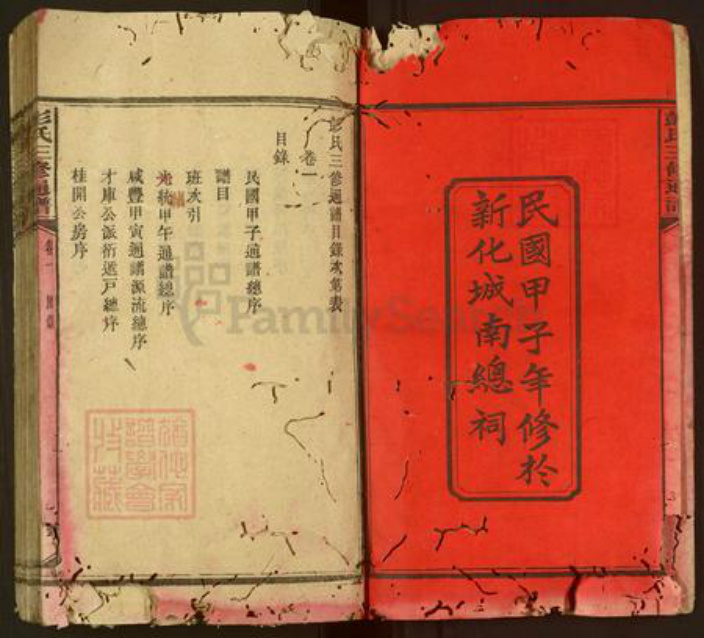 民國甲子年修於
新化城南總祠
彭氏三修通譜目錄次第表
卷一
目錄
民國甲子通譜總序
譜目
班次引
光統甲午通譜總序
咸豐甲寅通譜源流總序
才庫公派衍遞戶總序
桂開公房序
彭氏三修通譜
卷一
FamilySearch